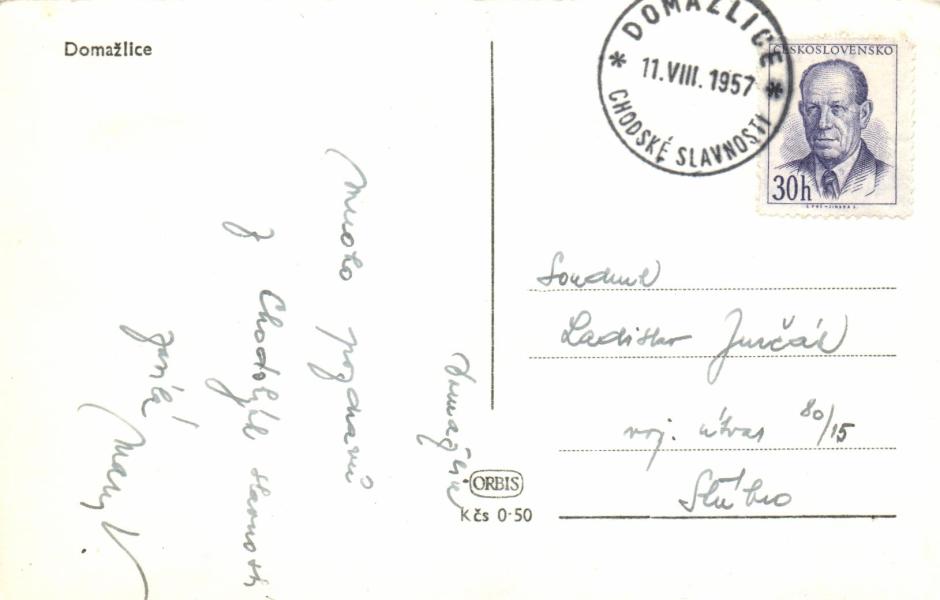 Domažlice
DOMAŽLICE
11.VIII.1957
CHODSKÉ SLAVNOSTI
ČESKOSLOVENSKO
30h
Mnoho pozdravů
z Chodských slavností
zasílá
Soudruh
Ladislav Jurčák
voj. útvar 80/15
Stříbro
ORBIS
Kčs 0·50